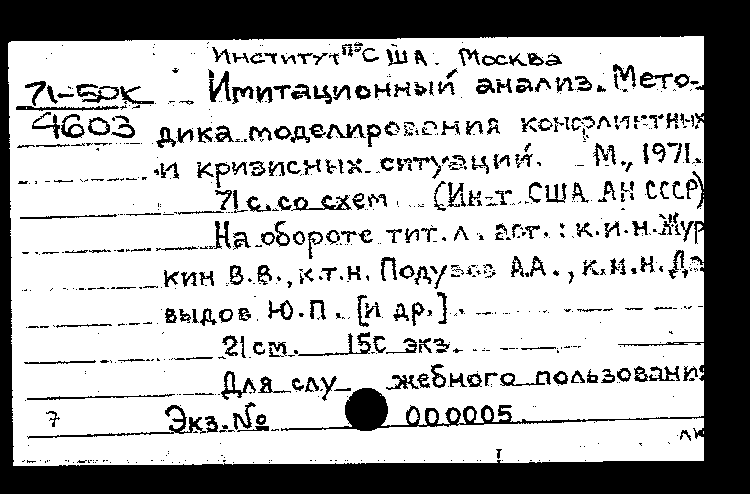 Институт США. Москва
71-50К Имитационный анализ. Мето-
4603 дика моделирования конфликтных
и кризисных ситуаций. М., 1971.
71 с. со схем (Ин-т США АН СССР)
На обороте тит. л. авт.: к.и.н. Жур
кин В.В., к.т.н. Подузов А.А., к.и.н. Да
выдов Ю.П. [и др.].
21 см. 150 экз.
Для слу жебного пользования
7 Экз. № 000005.